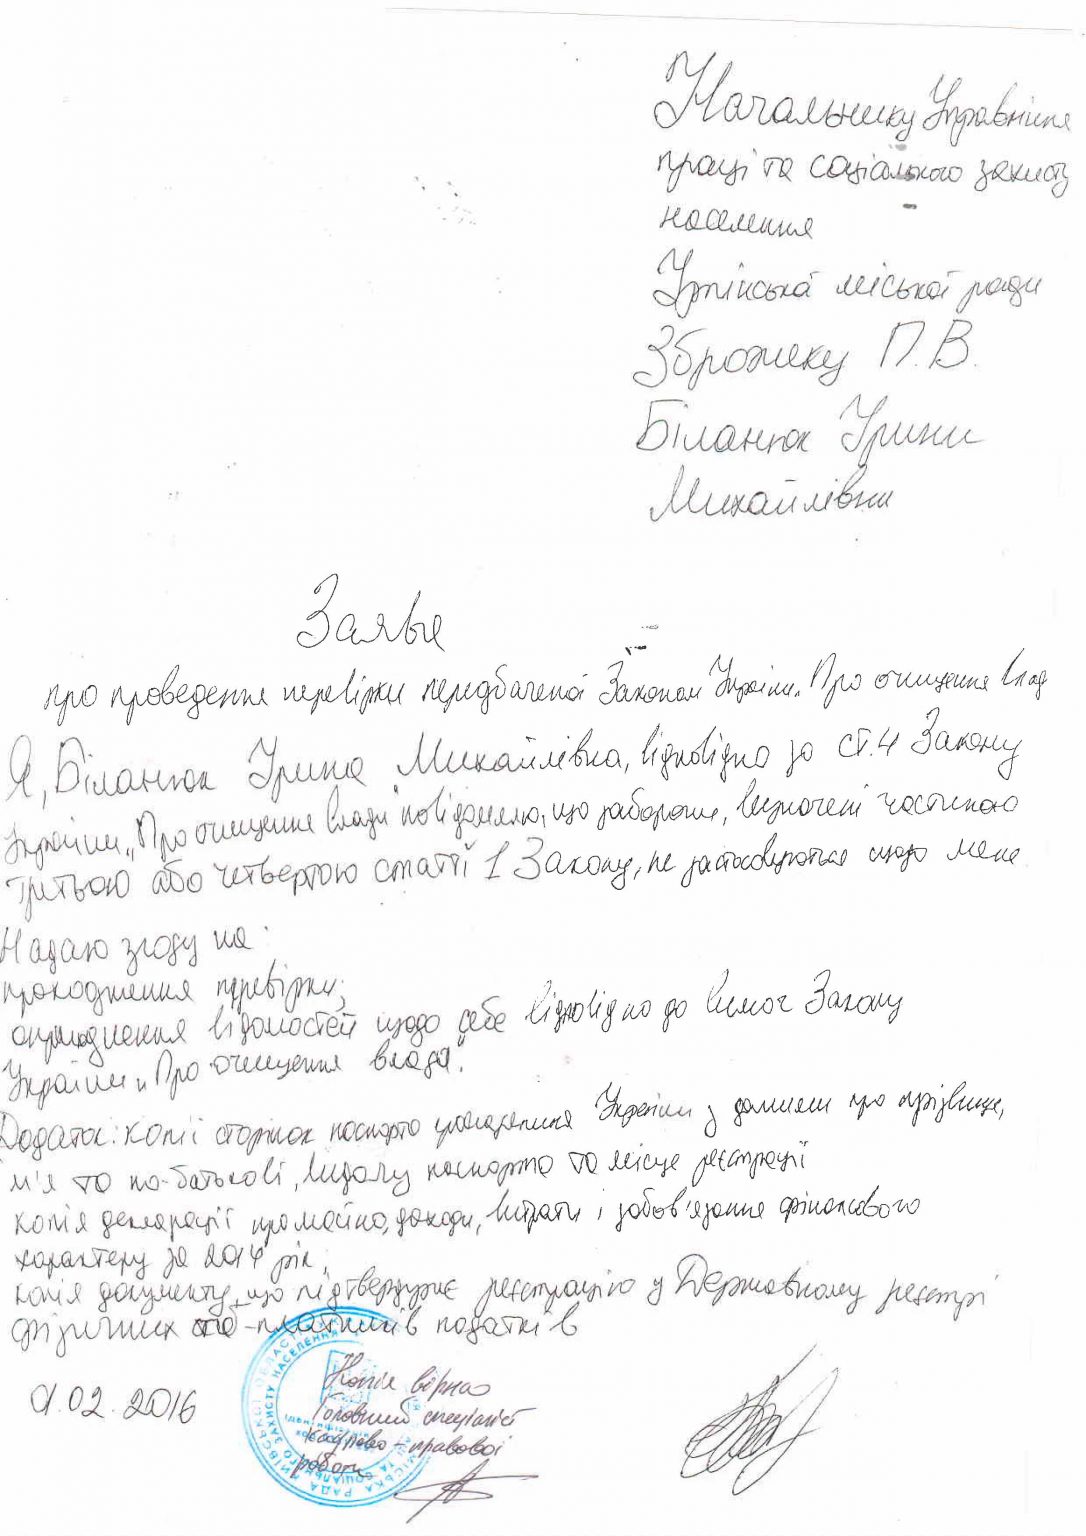 Начальнику Управління
праці та соціального захисту
населення
Ірпінської міської ради
Зброжеку П.В.
Біланюк Ірини
Михайлівни
Заява
про проведення перевірки передбаченої Законом України „Про очищення влад
Я, Біланюк Ірина Михайлівна, відповідно до ст.4 Закону
України „Про очищення влади" повідомляю, що заборони, визначені частиною
третьою або четвертою статті 1 Закону, не застосовуються щодо мене
Надаю згоду на:
проходження перевірки;
оприлюднення відомостей щодо себе відповідно до вимог Закону
України „Про очищення влади".
Додаток: копії сторінок паспорта громадянина України з даними про прізвище,
ім'я та по-батькові, видачу паспорта та місце реєстрації
копія декларації про майно, доходи, витрати і зобов'язання фінансового
характеру за 2014 рік;
копія документу, що підтверджує реєстрацію у Державному реєстрі
фізичних платників податків
02.2016
Копія вірна
Головний спеціаліст
кадрово-правової
роботи